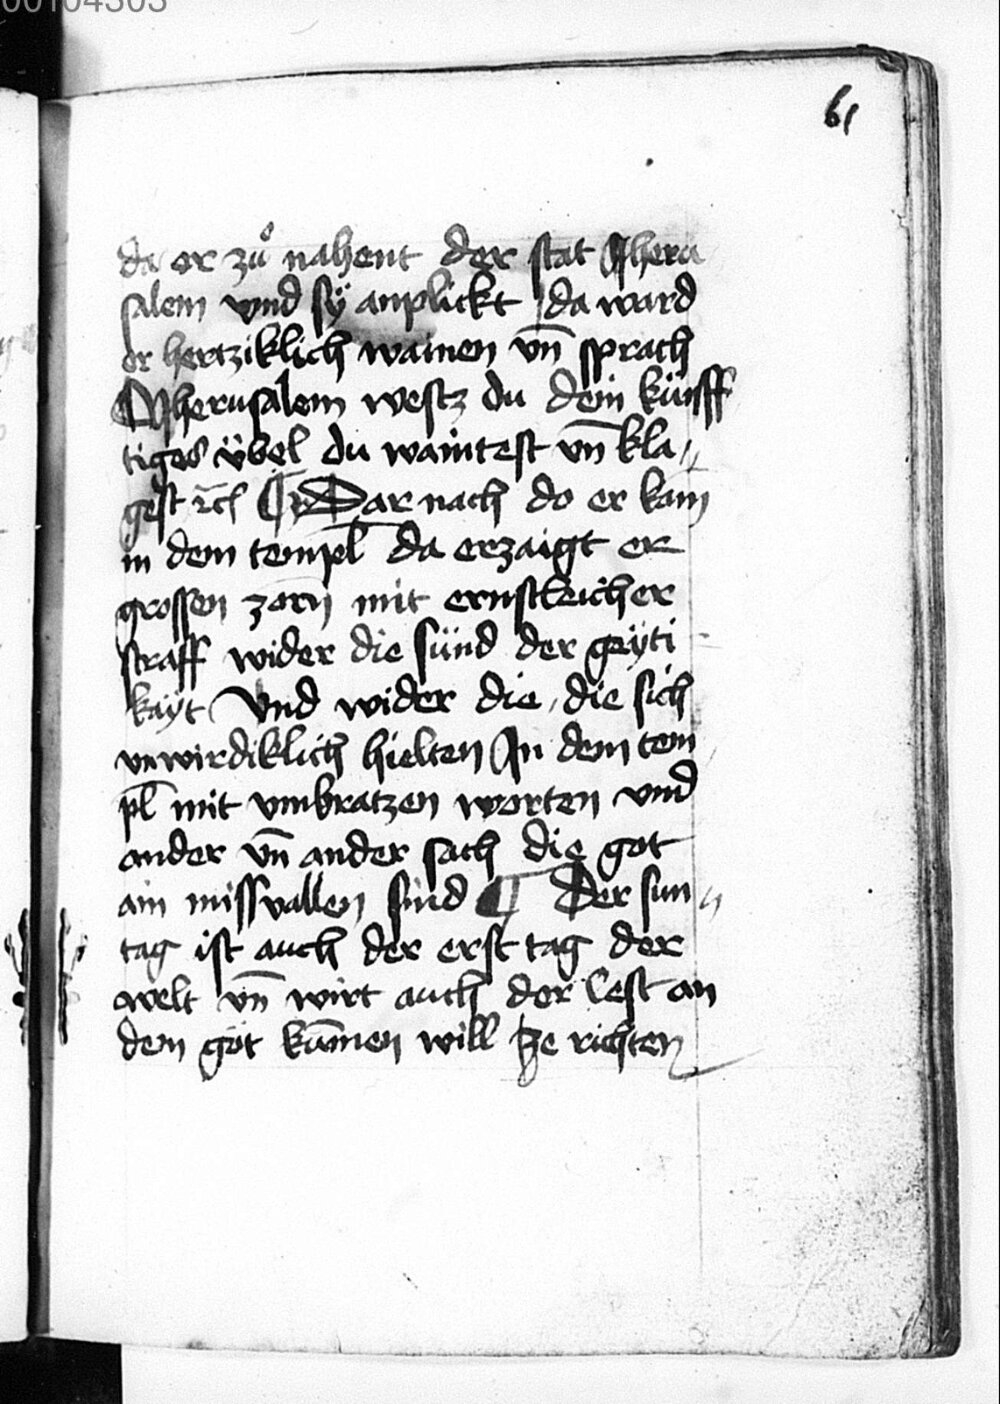 00104303
61
da er zuͦ nahent der stat Jheru
salem vnd sÿ anplickt da ward
er hertziklich wainen vn̄ sprach
O Jherusalem westz du dein künff
tiges übel du waintest vn̄ kla„
gest ꝛc̄ ¶ Dar nach do er kam
in dem templ̄ da erzaigt er
grossen zorn mit ernstleicher
straff wider die sünd der geÿti
kaÿt Vnd wider die, die sich
vnwirdiklich hielten Jn dem tem
pl̄ mit vmbratzen worten vnd
ander vn̄ ander sach die got
ain missvallen sind ¶ Der sun„
tag ist auch der erst tag der
welt vn̄ wirt auch der lest an
dem got kūmen will ze richten